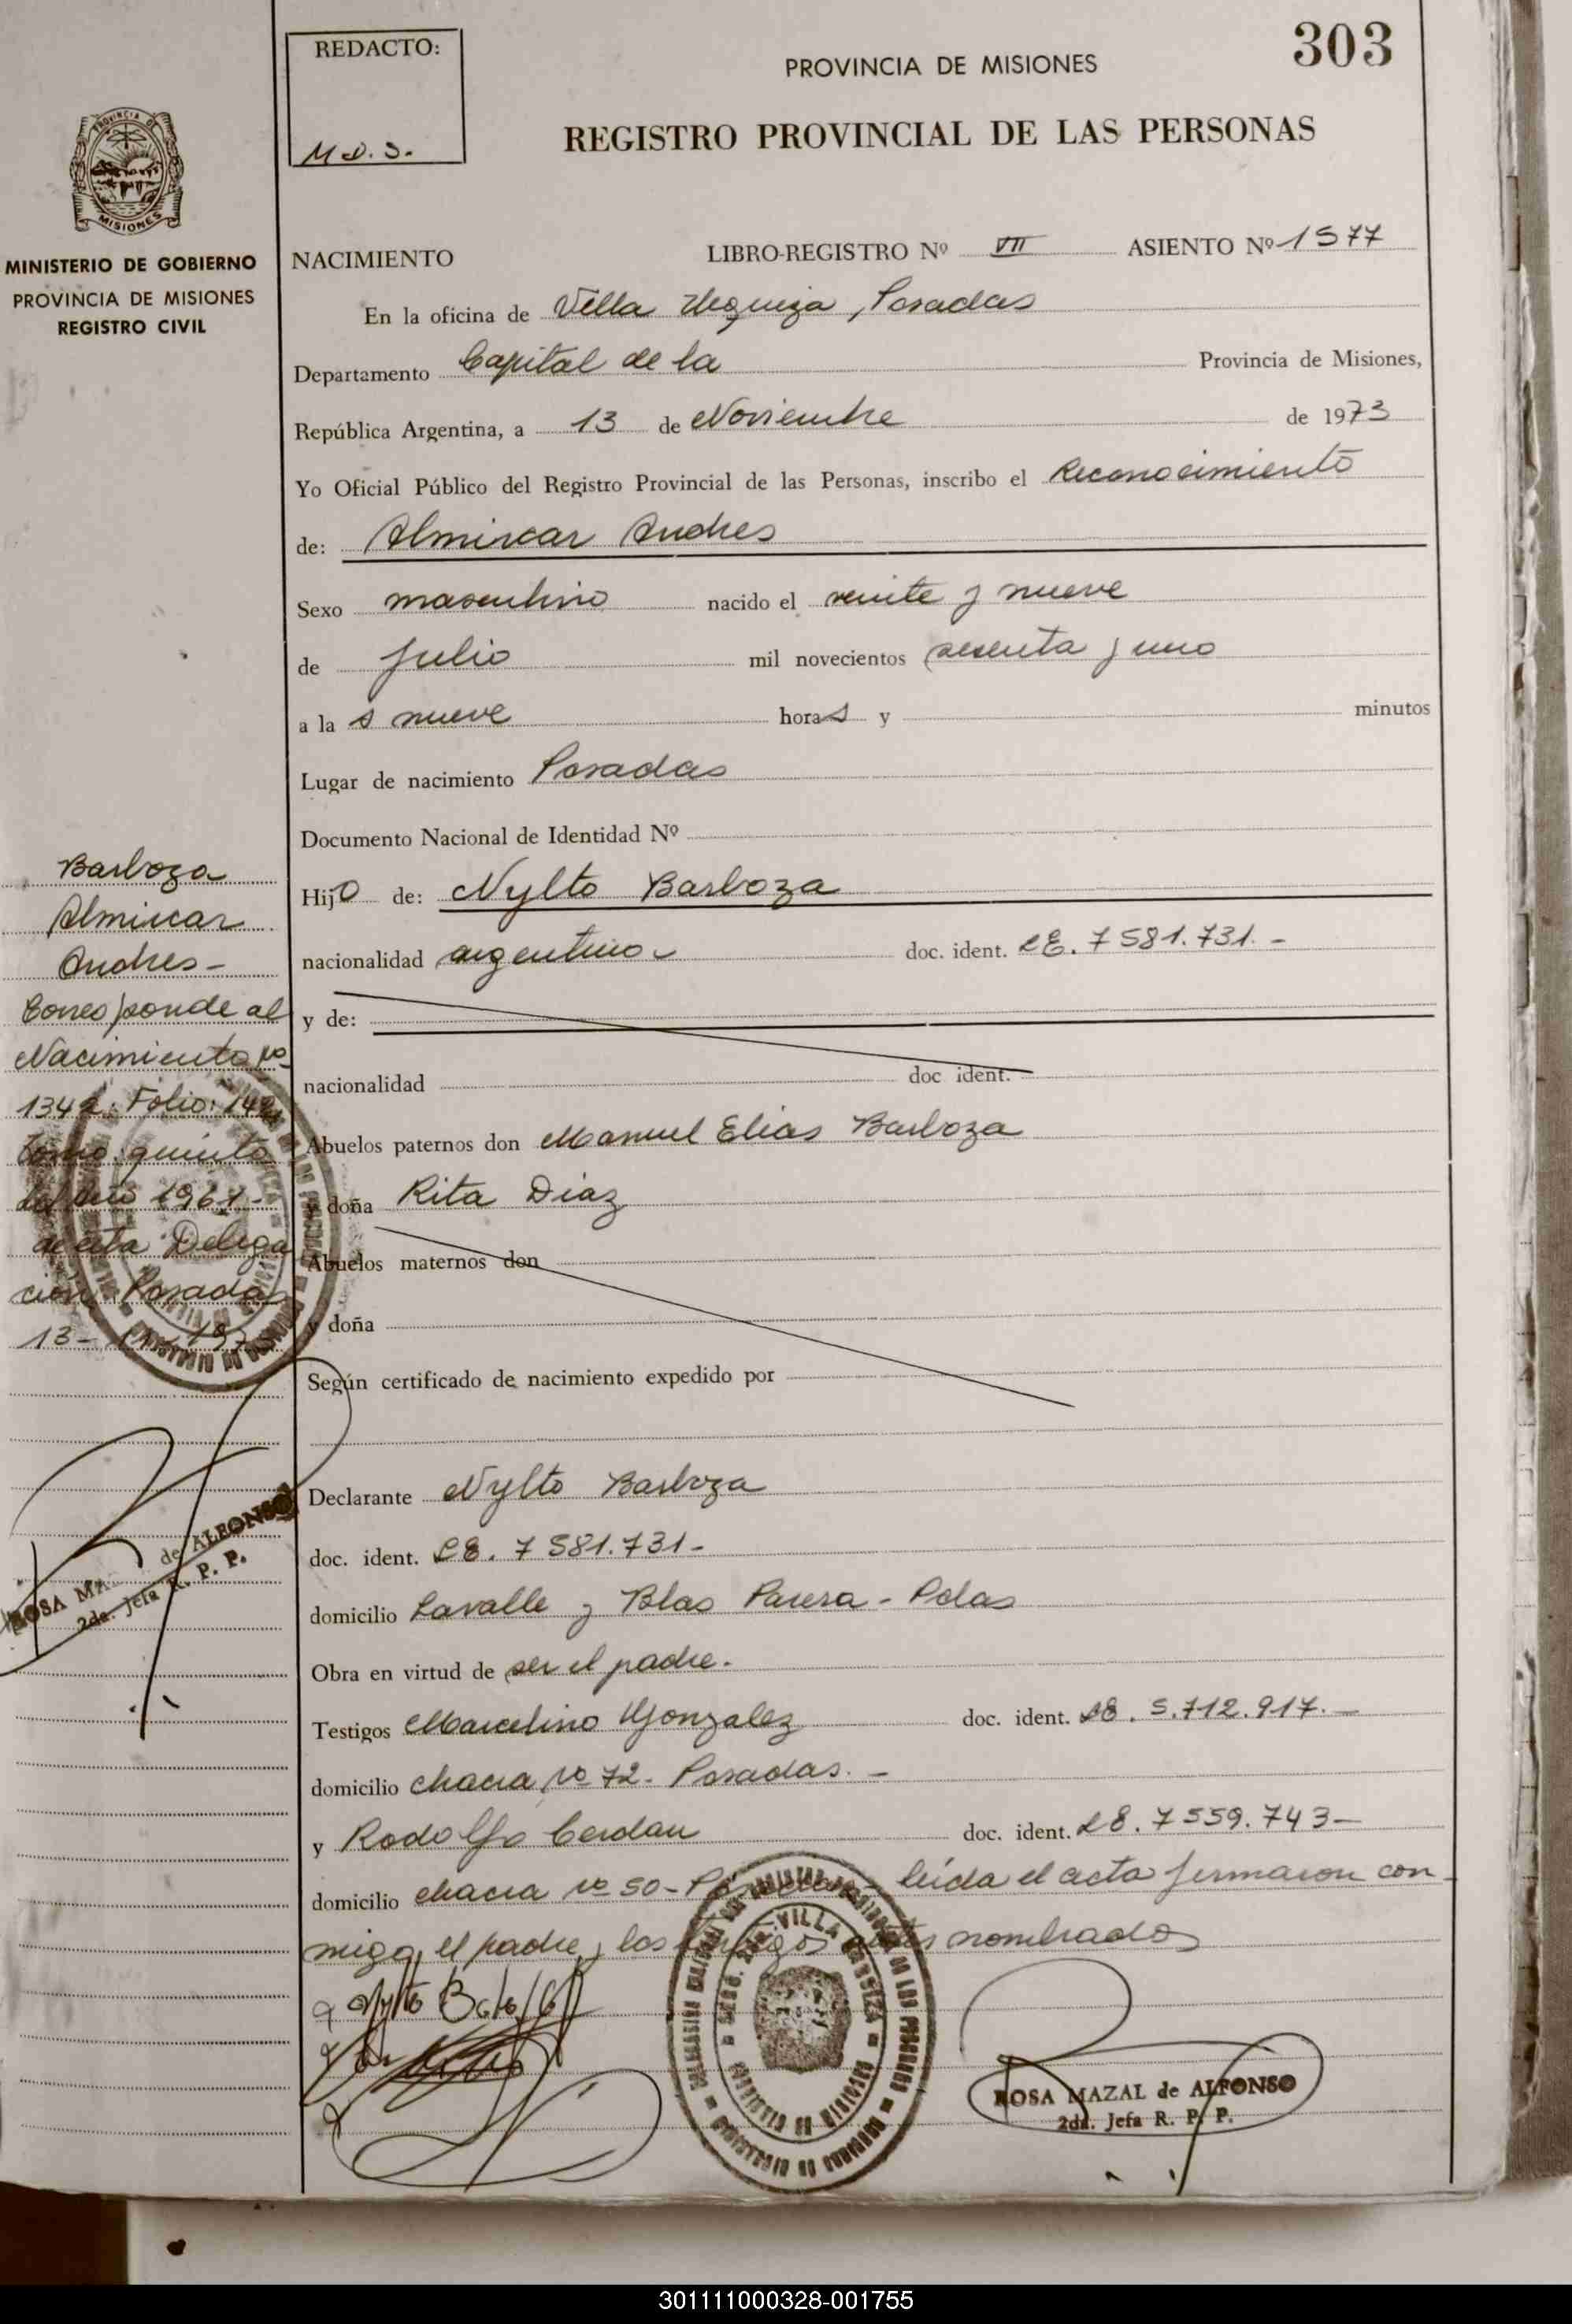 303
REDACTO:
M.D.S.
PROVINCIA DE MISIONES
REGISTRO PROVINCIAL DE LAS PERSONAS
PROVINCIA DE
MISIONES
MINISTERIO DE GOBIERNO
PROVINCIA DE MISIONES
REGISTRO CIVIL
NACIMIENTO LIBRO-REGISTRO Nº VII ASIENTO Nº 1577
En la oficina de Villa Urquiza, Posadas
Departamento Capital de la Provincia de Misiones,
República Argentina, a 13 de Noviembre de 1973
Yo Oficial Público del Registro Provincial de las Personas, inscribo el Reconocimiento
de: Almircar Andres
Sexo masculino nacido el veinte y nueve
de Julio mil novecientos sesenta y uno
a la s nueve horas y minutos
Lugar de nacimiento Posadas
Documento Nacional de Identidad Nº
Hijo de: Nylto Barboza
nacionalidad argentino doc. ident. LE. 7581.731.-
y de:
nacionalidad doc ident.
Abuelos paternos don Manuel Elias Barboza
y doña Rita Diaz
Abuelos maternos don
y doña
Según certificado de nacimiento expedido por
Declarante Nylto Barboza
doc. ident. LE. 7581.731-
domicilio Lavalle y Blas Parera - Pdas
Obra en virtud de ser el padre.
Testigos Marcelino Gonzalez doc. ident. LE. 5.712.917.-
domicilio chacra nº 72- Posadas.-
y Rodolfo Cerdan doc. ident. LE. 7559.743-
domicilio chacra nº 50- leida el acta firmaron con
migo, el padre y los testigos antes nombrados
Barboza
Almircar
Andres-
Corresponde al
Nacimiento nº
1342. Folio:
tomo: quinto
del año 1961-
de esta Delega
ción. Posadas
13-
ROSA de ALFONSO
2da. Jefa R. P. P.
VILLA URQUIZA
ROSA MAZAL de ALFONSO
2da. Jefa R. P. P.
301111000328-001755